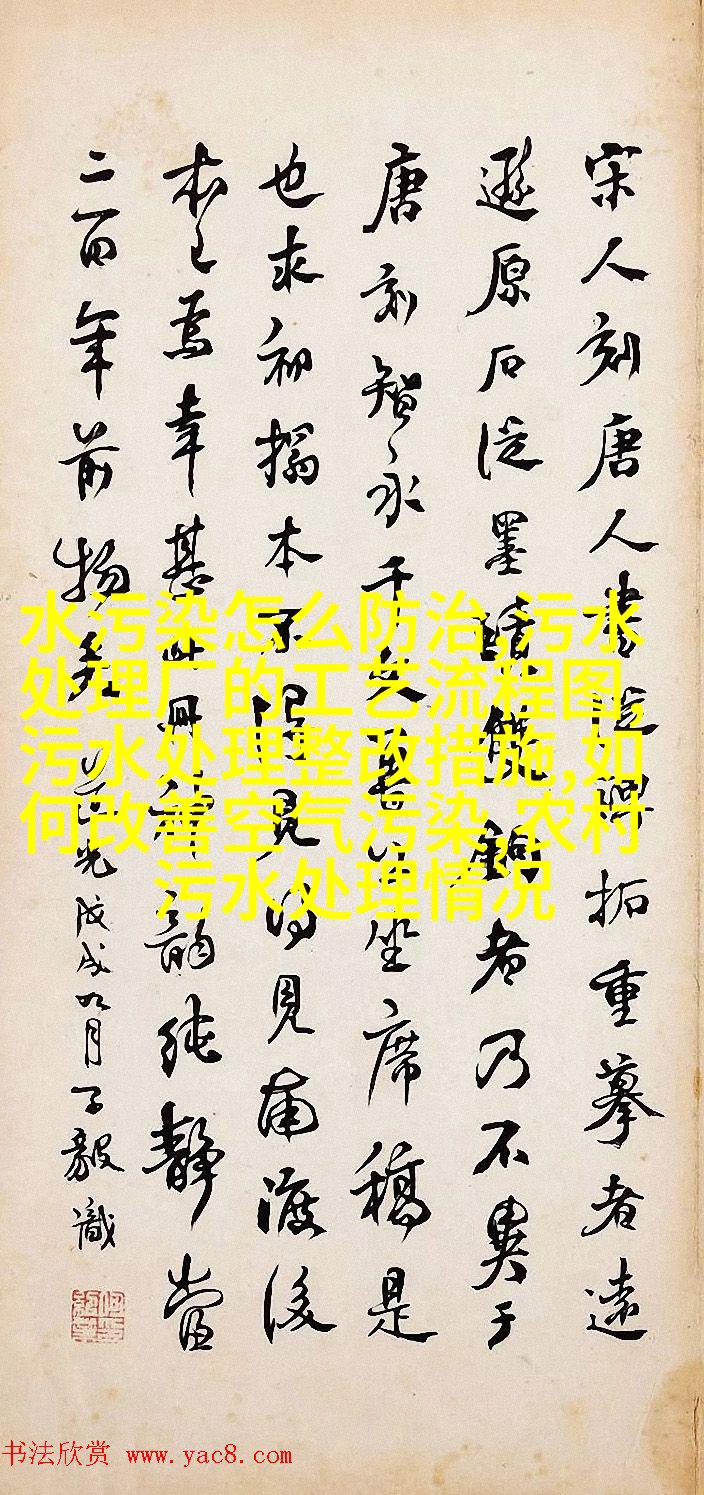 宋人刻唐人書從拓重摹者遠
遜原石從墨蹟鉤者乃不異于
唐刻智永千文坐席稿是
也求初搨本不得見得見南渡後
本已為幸甚此冊神韻純静當
二百年前物矣 道光戊戌九月子毅識
水污染怎么防治,污水
处理厂的工艺流程图,
污水处理整改措施,如
何改善空气污染,农村
污水处理情况
书法欣赏 www.yac8.com